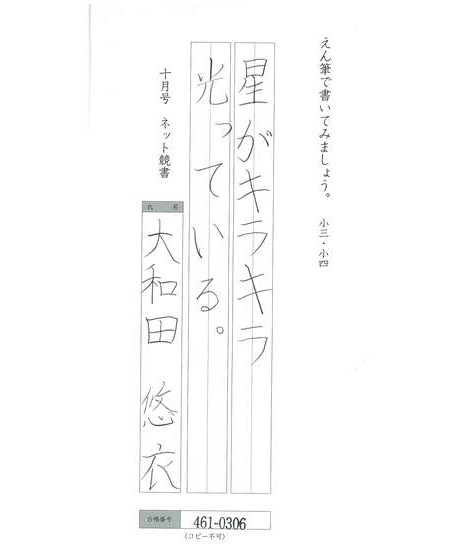 えん筆で書いてみましょう。 小三・小四
星がキラキラ
光っている。
十月号 ネット競書
氏 名
大和田 悠衣
台帳番号 461-0306
(コピー不可)